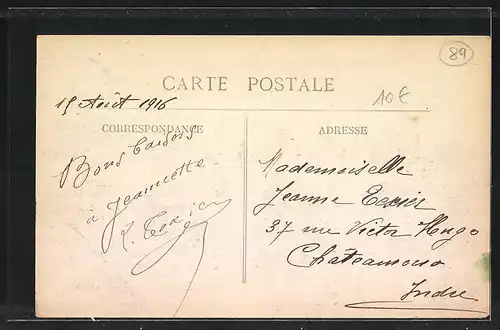 89
CARTE POSTALE
10€
15 Août 1916
CORRESPONDANCE
ADRESSE
Bons baisers
à Jeannette
Texier
Mademoiselle
Jeanne Texier
37 rue Victor Hugo
Châteauroux
Indre